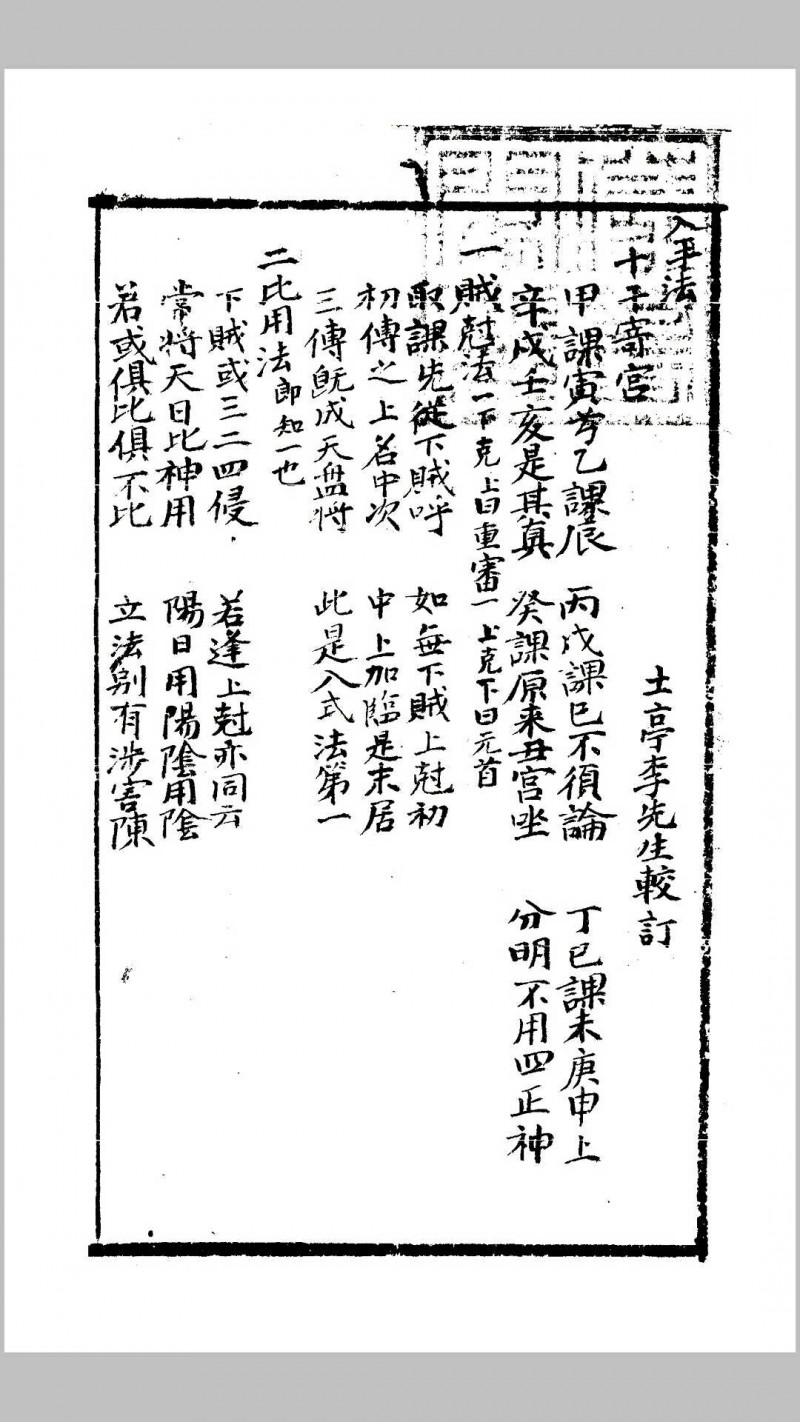 入手法
土亭李先生較訂
十干寄宮
甲課寅兮乙課辰　丙戊課巳不須論　丁巳課未庚申上
辛戌壬亥是其真　癸課原来丑宮坐　分明不用四正神
一賊尅法一下克上曰重審一上克下曰元首
取課先從下賊呼　如無下賊上尅初
初傳之上名中次　中上加臨是末居
三傳既成天盤將　此是入式法第一
二比用法即知一也
下賊或三二四侵　若逢上尅亦同云
常将天日比神用　陽日用陽陰用陰
若或俱比俱不比　立法別有涉害陳